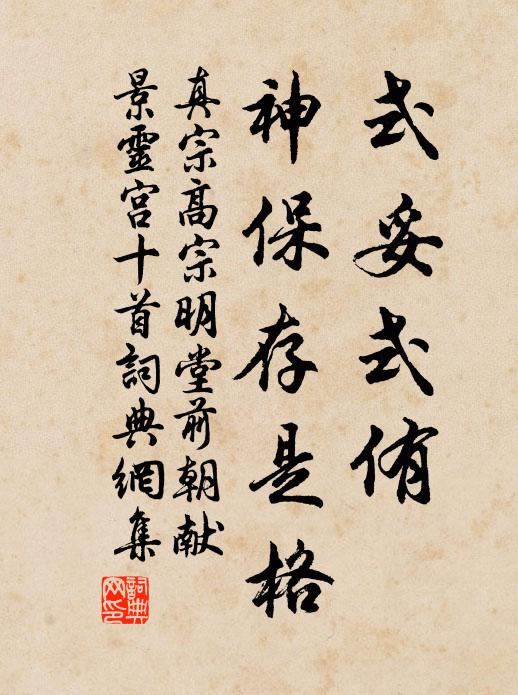 式妥式侑
神保存是格
真宗高宗明堂前朝献
景靈宮十首詞典網集
詞典網印